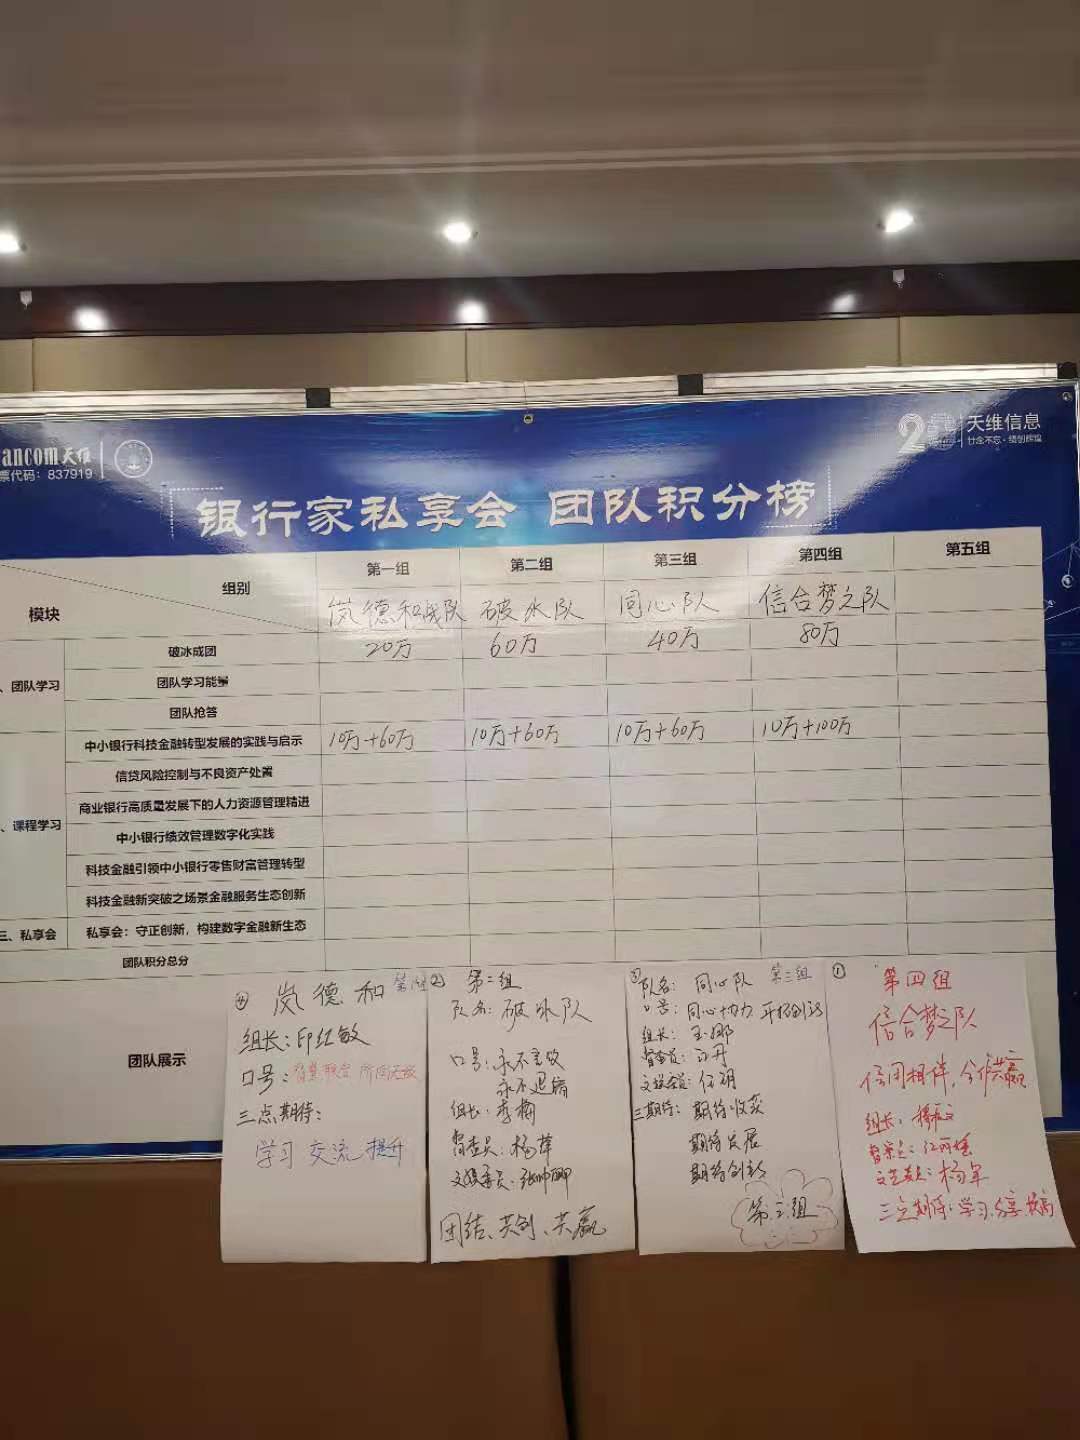 ancom天维
票代码：837919
天维信息
银行家私享会 团队积分榜
组别
模块
第一组
第二组
第三组
第四组
第五组
岚德和战队
破冰队
同心队
信合梦之队
、团队学习
破冰成团
20万
60万
40万
80万
团队学习能量
团队抢答
、课程学习
中小银行科技金融转型发展的实践与启示
10万+60万
10万+60万
10万+60万
10万+100万
信贷风险控制与不良资产处置
商业银行高质量发展下的人力资源管理精进
中小银行绩效管理数字化实践
科技金融引领中小银行零售财富管理转型
科技金融新突破之场景金融服务生态创新
三、私享会
私享会：守正创新，构建数字金融新生态
团队积分总分
团队展示
④ 岚德和
组长：印红敏
口号：
三点期待：
学习 交流 提升
② 第二组
队名：破冰队
口号：永不言败
永不退缩
组长：李楠
督查员：杨萍
团结、共创、共赢
③ 队名：同心队 第三组
口号：同心协力 开拓创新
组长：王娜
期待收获
期待发展
期待创新
第三组
①
第四组
信合梦之队
组长：
杨军
三点期待：学习、分享、提高